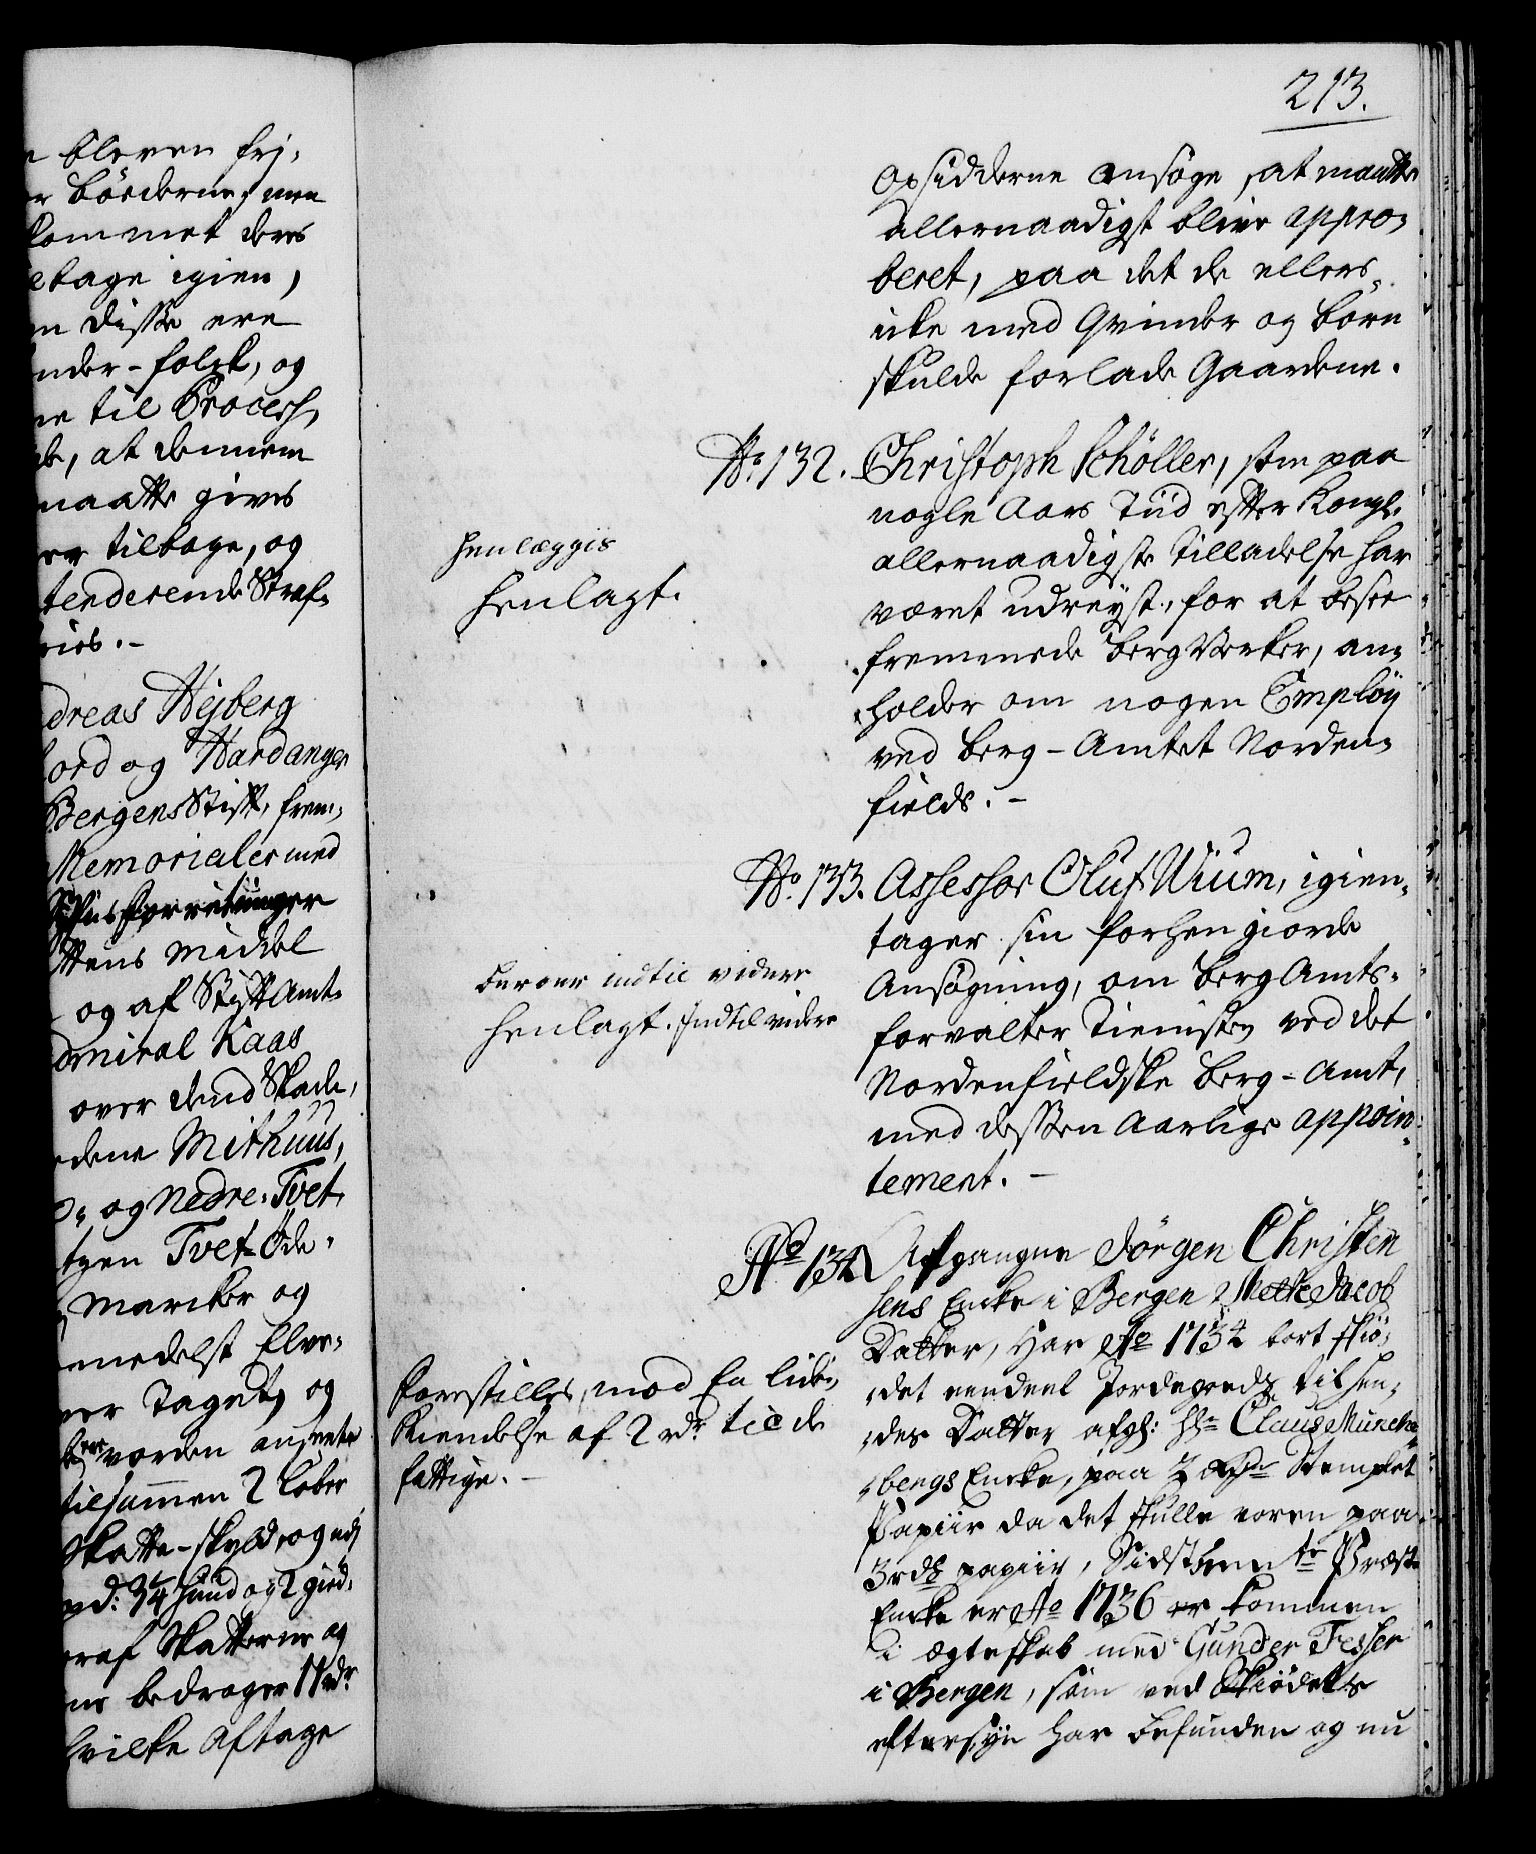 n bleven frj,
er bönderne, men
kommet deres
tilbage igien,
n disse ere
nder-folck, og
ne til Process,
de, at dennem
maatte gives
er tilbage, og
tenderende Straf,
ries.-
dreas Hejberg
ord og Hardanger
Bergens Stift, frem,
Memorialer med
forretninger
ttens Middel
og af Stift Amt,
dmiral Kaas
over dend Skade,
dene Mithuus,
og Nedre-Tvet,
tgen Tvet-Öde,
Marcker og
medelst Elve,
er Taget, og
vorden anseete
tilsammen 2 Löber
Skatte-skyld, og udj
pd: 3/4 huud og 2 gied,
eraf Skatterne og
ne bedrager 11 rdr
hvilke Aftage
213.
Opsidderne ansöge, at maatte
allernaadigst blive appro,
beret, paa det de ellers
icke med Qvinder og börn
skulde forlade Gaardene.
No. 132. Christoph Schöller, som paa
nogle Aars Tiid efter Kongl.
allernaadigste Tilladelse har
været udreyst, for at besee
fremmede bergVercker, an,
holder om nogen Employ
ved berg-Amtet Norden,
fields.-
henlæggis
henlagt.
No. 133. Assessor Oluf Wium, igien,
tager sin forhen giorde
Ansögning, om berg Amts,
forvalter Tienisten ved det
Nordenfieldske berg-Amt,
med dessen Aarlige appoin,
tement.-
beroer indtil videre
henlagt. Indtil videre
No 134 Afgangne Jörgen Christen
sens Encke i Bergen Mette Jacob
Datter, har Ao 1734 bort skiö,
det eendeel Jordegoeds til hen,
des Datter afgl: Hr Claus Munche,
bergs Encke, paa 2 Stemplet
Papiir da det skulle voren paa
3 rds papiir, Sidstbemte Præste
Encke er Ao 1736 er kommen
i ægteskab med Gunder Fesser
i Bergen, som ved Skiödets
eftersyn har befunden og nu
forestilles, mod En liden
Kiendelse af 2 rdr til de
fattige.-